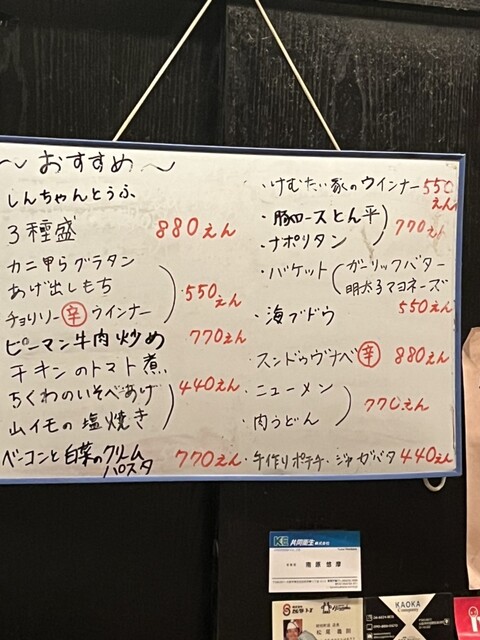 ～おすすめ～
しんちゃんとうふ
3種盛 880えん
カニ甲らグラタン
あげ出しもち
チョリソー辛ウインナー
550えん
ピーマン牛肉炒め 770えん
チキンのトマト煮
ちくわのいそべあげ
440えん
山イモの塩焼き
ベーコンと白菜のクリーム
パスタ
770えん
・けむたい家のウインナー 550
えん
・豚ロースとん平
・ナポリタン
770えん
・バケット
ガーリックバター
明太子マヨネーズ
550えん
・海ブドウ
スンドゥヴナベ辛 880えん
・ニューメン
・肉うどん
770えん
・手作りポテチ・ジャガバタ 440えん
KE 共同衛生株式会社
南原 悠摩
松尾
KAOKA
Company